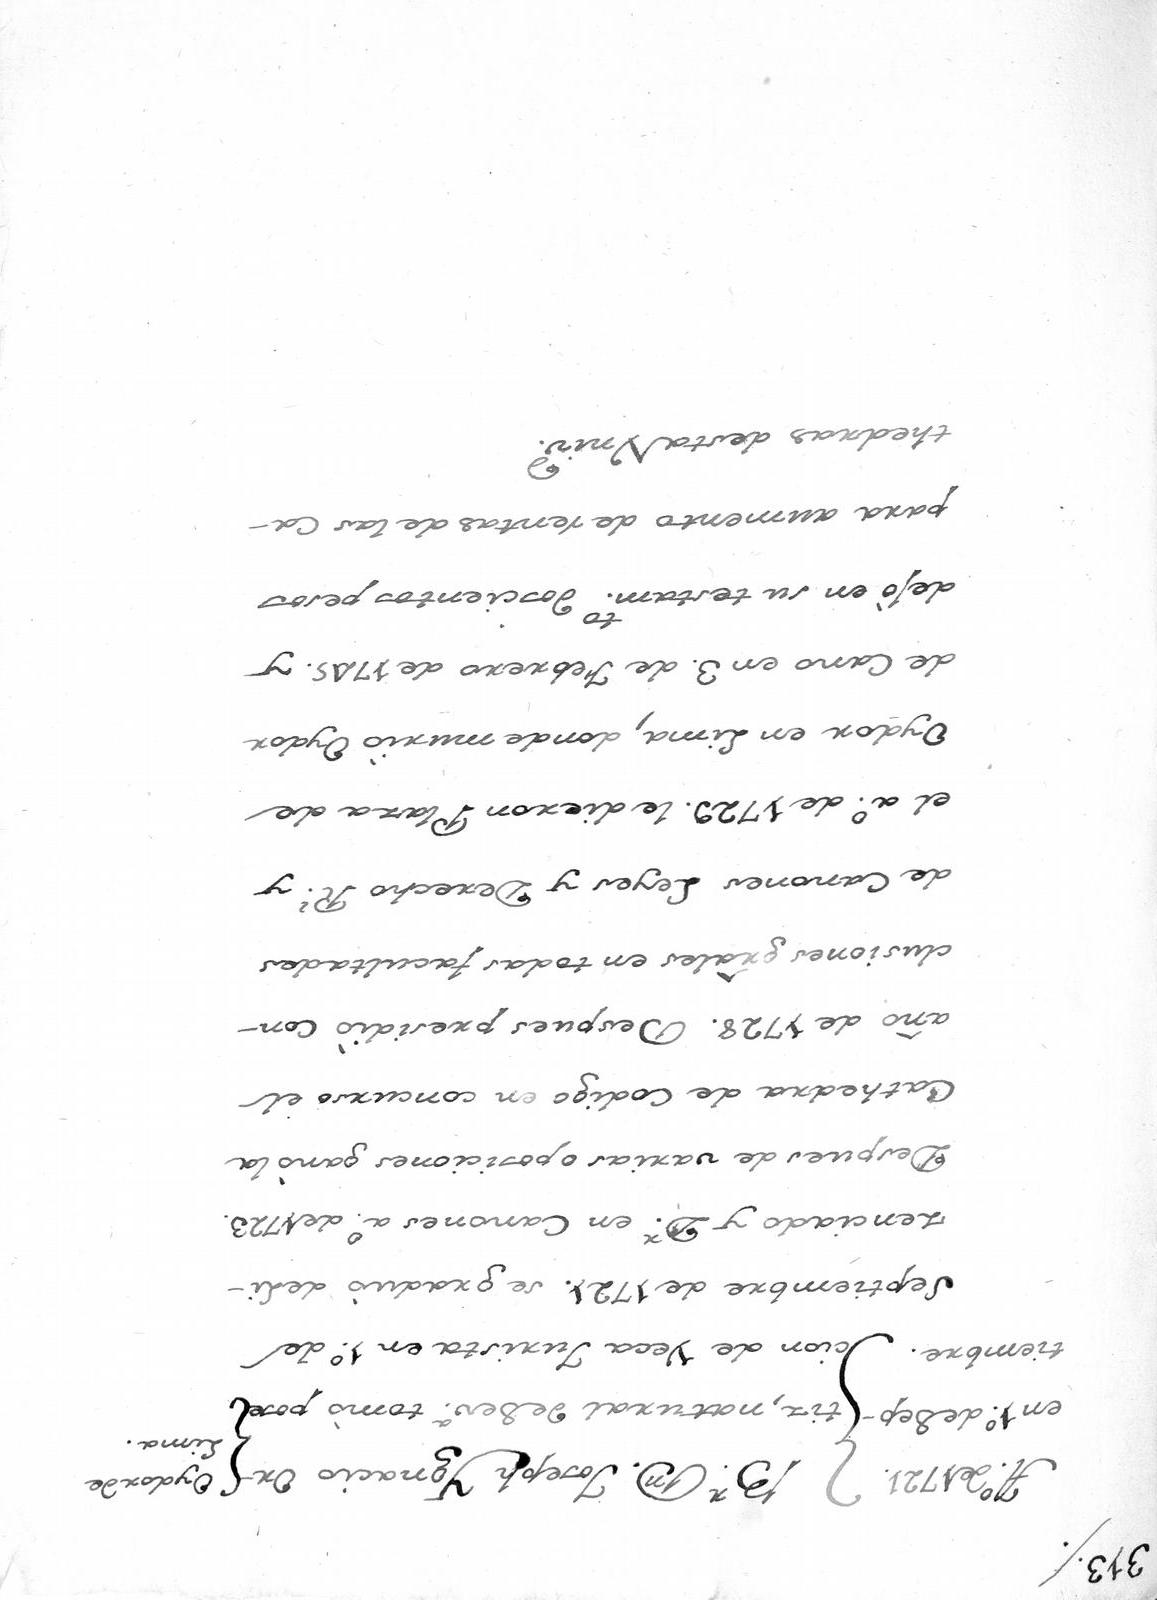 313./.
A.º de 1721.
en 1º. de Sep-
tiembre.
B.r D.n Joseph Ygnacio Or
tiz, natural de Sev.a tomò pose
cion de Veca Jurista en 1º. de
Septiembre de 1721. se graduò de Li-
zenciado y D.r en Canones a.º de 1723.
Despues de varias oposiciones ganò la
Cathedra de Codigo en concurso el
año de 1728. Despues presidiò Con-
clusiones grâles en todas facultades
de Canones Leyes y Derecho R.l y
el a.º de 1729. le dieron Plaza de
Oydor en Lima, donde muriò Oydor
de Cano en 3. de Febrero de 17
dejò en su testam.to doscientos pesos
para aumento de rentas de las Ca-
thedras desta Vniv.d
Oydor de
Lima.